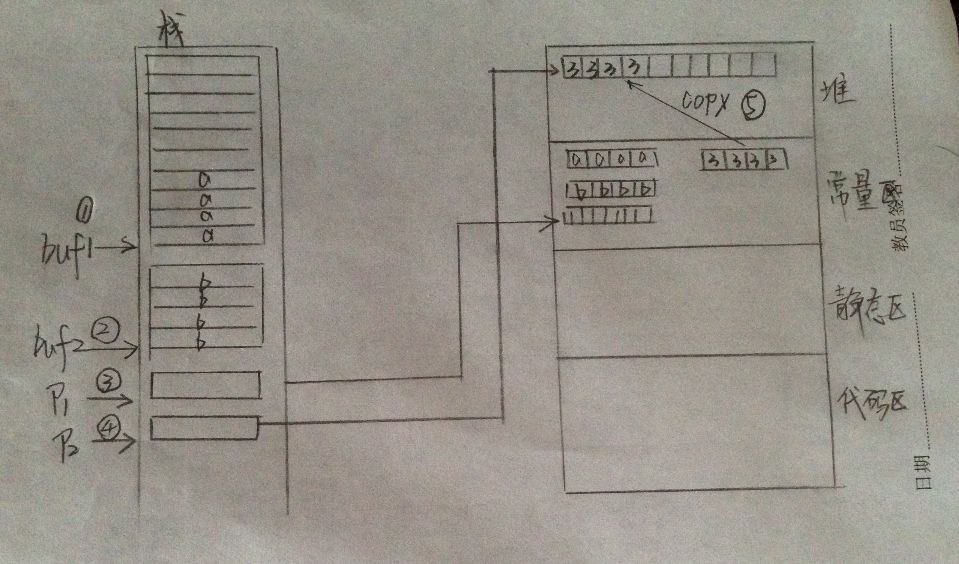 栈
a
a
a
a
①
buf1
b
b
b
b
buf2 ②
P1 ③
P2 ④
3 3 3 3
copy ⑤
堆
a a a a
3 3 3 3
b b b b
常量区
静态区
代码区
教员签名
日期